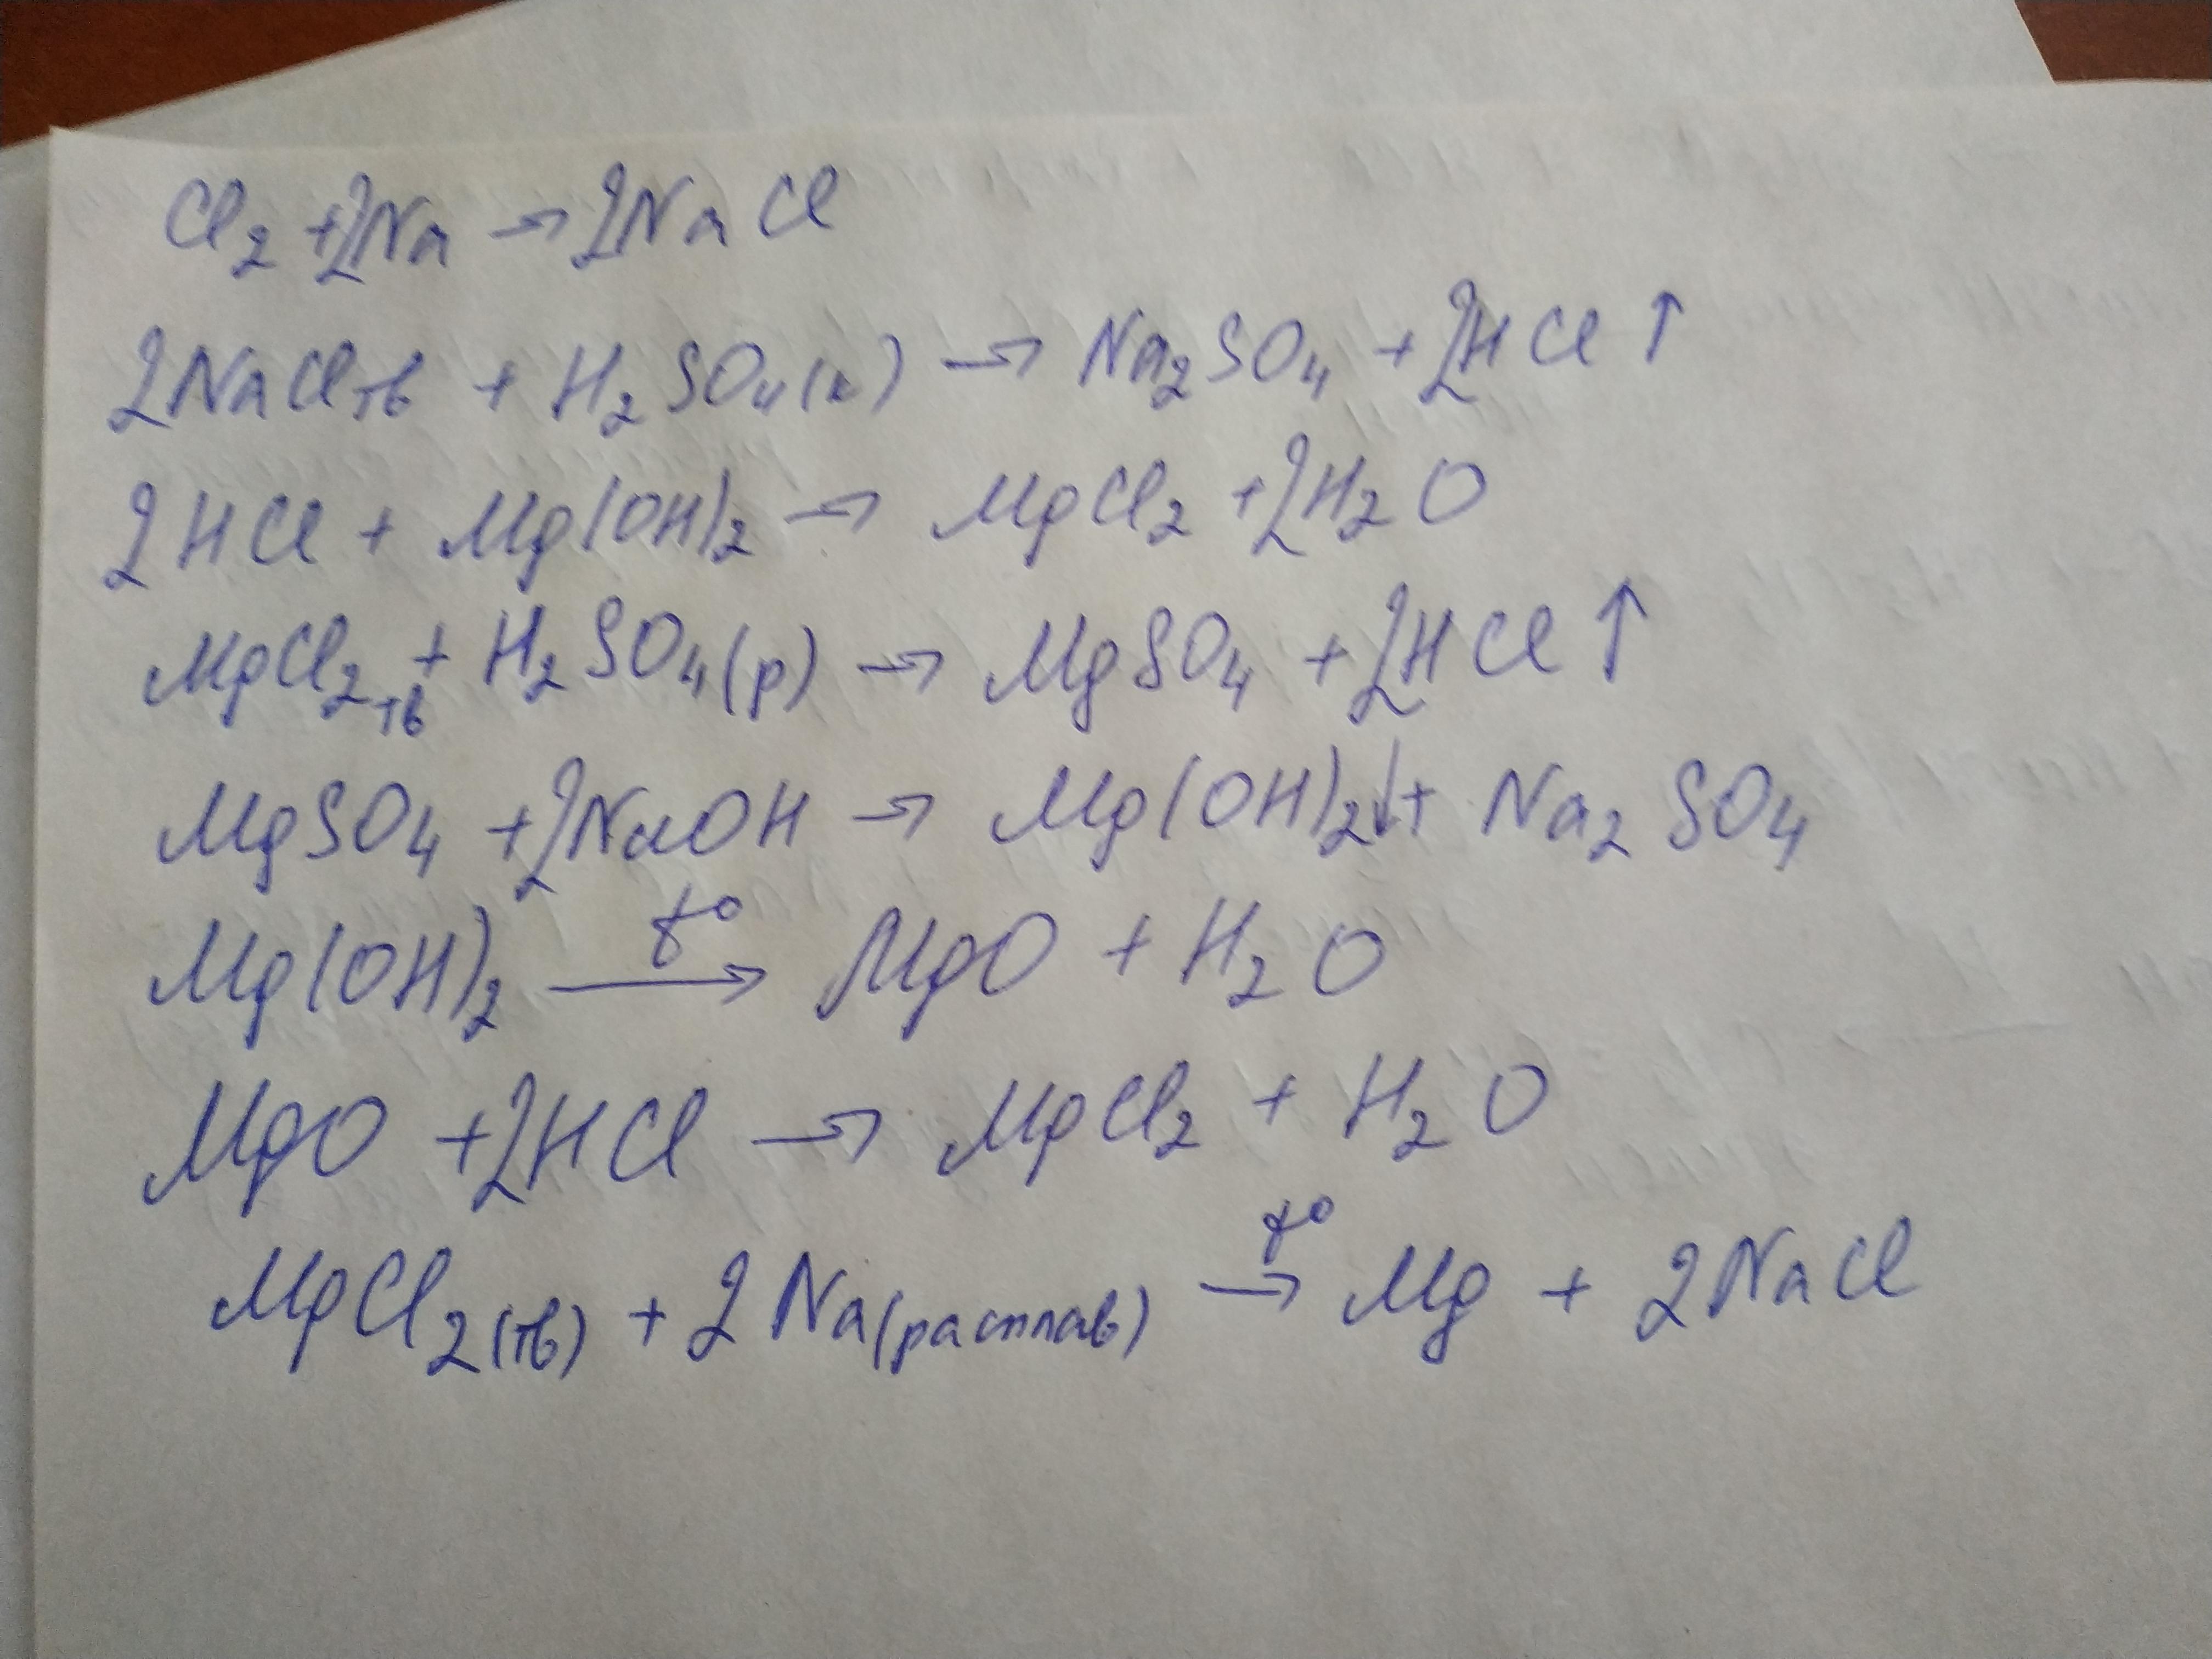 Cl₂ + 2Na → 2NaCl
2NaClтв + H₂SO₄(к) → Na₂SO₄ + 2HCl ↑
2HCl + Mg(OH)₂ → MgCl₂ + 2H₂O
MgCl₂тв + H₂SO₄(р) → MgSO₄ + 2HCl ↑
MgSO₄ + 2NaOH → Mg(OH)₂↓ + Na₂SO₄
Mg(OH)₂ —t°→ MgO + H₂O
MgO + 2HCl → MgCl₂ + H₂O
MgCl₂(тв) + 2Na(расплав) —t°→ Mg + 2NaCl